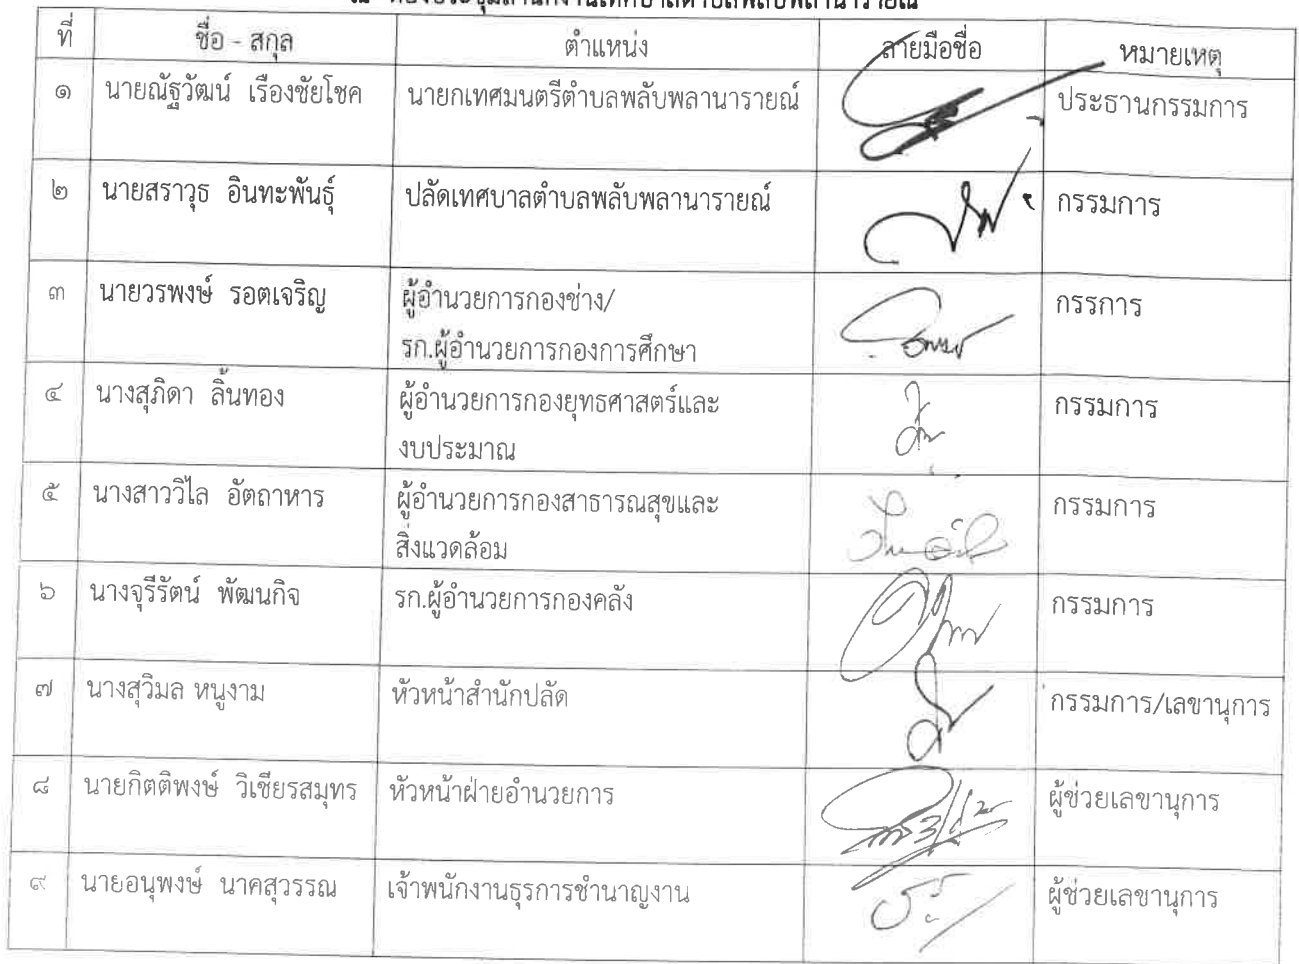 ณ ห้องประชุมสำนักงานเทศบาลตำบลพลับพลานารายณ์
ที่ ชื่อ - สกุล ตำแหน่ง ลายมือชื่อ หมายเหตุ
๑ นายณัฐวัฒน์ เรืองชัยโชค นายกเทศมนตรีตำบลพลับพลานารายณ์ ประธานกรรมการ
๒ นายสราวุธ อินทะพันธุ์ ปลัดเทศบาลตำบลพลับพลานารายณ์ กรรมการ
๓ นายวรพงษ์ รอตเจริญ ผู้อำนวยการกองช่าง/ กรรการ
รก.ผู้อำนวยการกองการศึกษา
๔ นางสุภิดา ลิ้นทอง ผู้อำนวยการกองยุทธศาสตร์และ กรรมการ
งบประมาณ
๕ นางสาววิไล อัตถาหาร ผู้อำนวยการกองสาธารณสุขและ กรรมการ
สิ่งแวดล้อม
๖ นางจุรีรัตน์ พัฒนกิจ รก.ผู้อำนวยการกองคลัง กรรมการ
๗ นางสุวิมล หนูงาม หัวหน้าสำนักปลัด กรรมการ/เลขานุการ
๘ นายกิตติพงษ์ วิเชียรสมุทร หัวหน้าฝ่ายอำนวยการ ผู้ช่วยเลขานุการ
๙ นายอนุพงษ์ นาคสุวรรณ เจ้าพนักงานธุรการชำนาญงาน ผู้ช่วยเลขานุการ